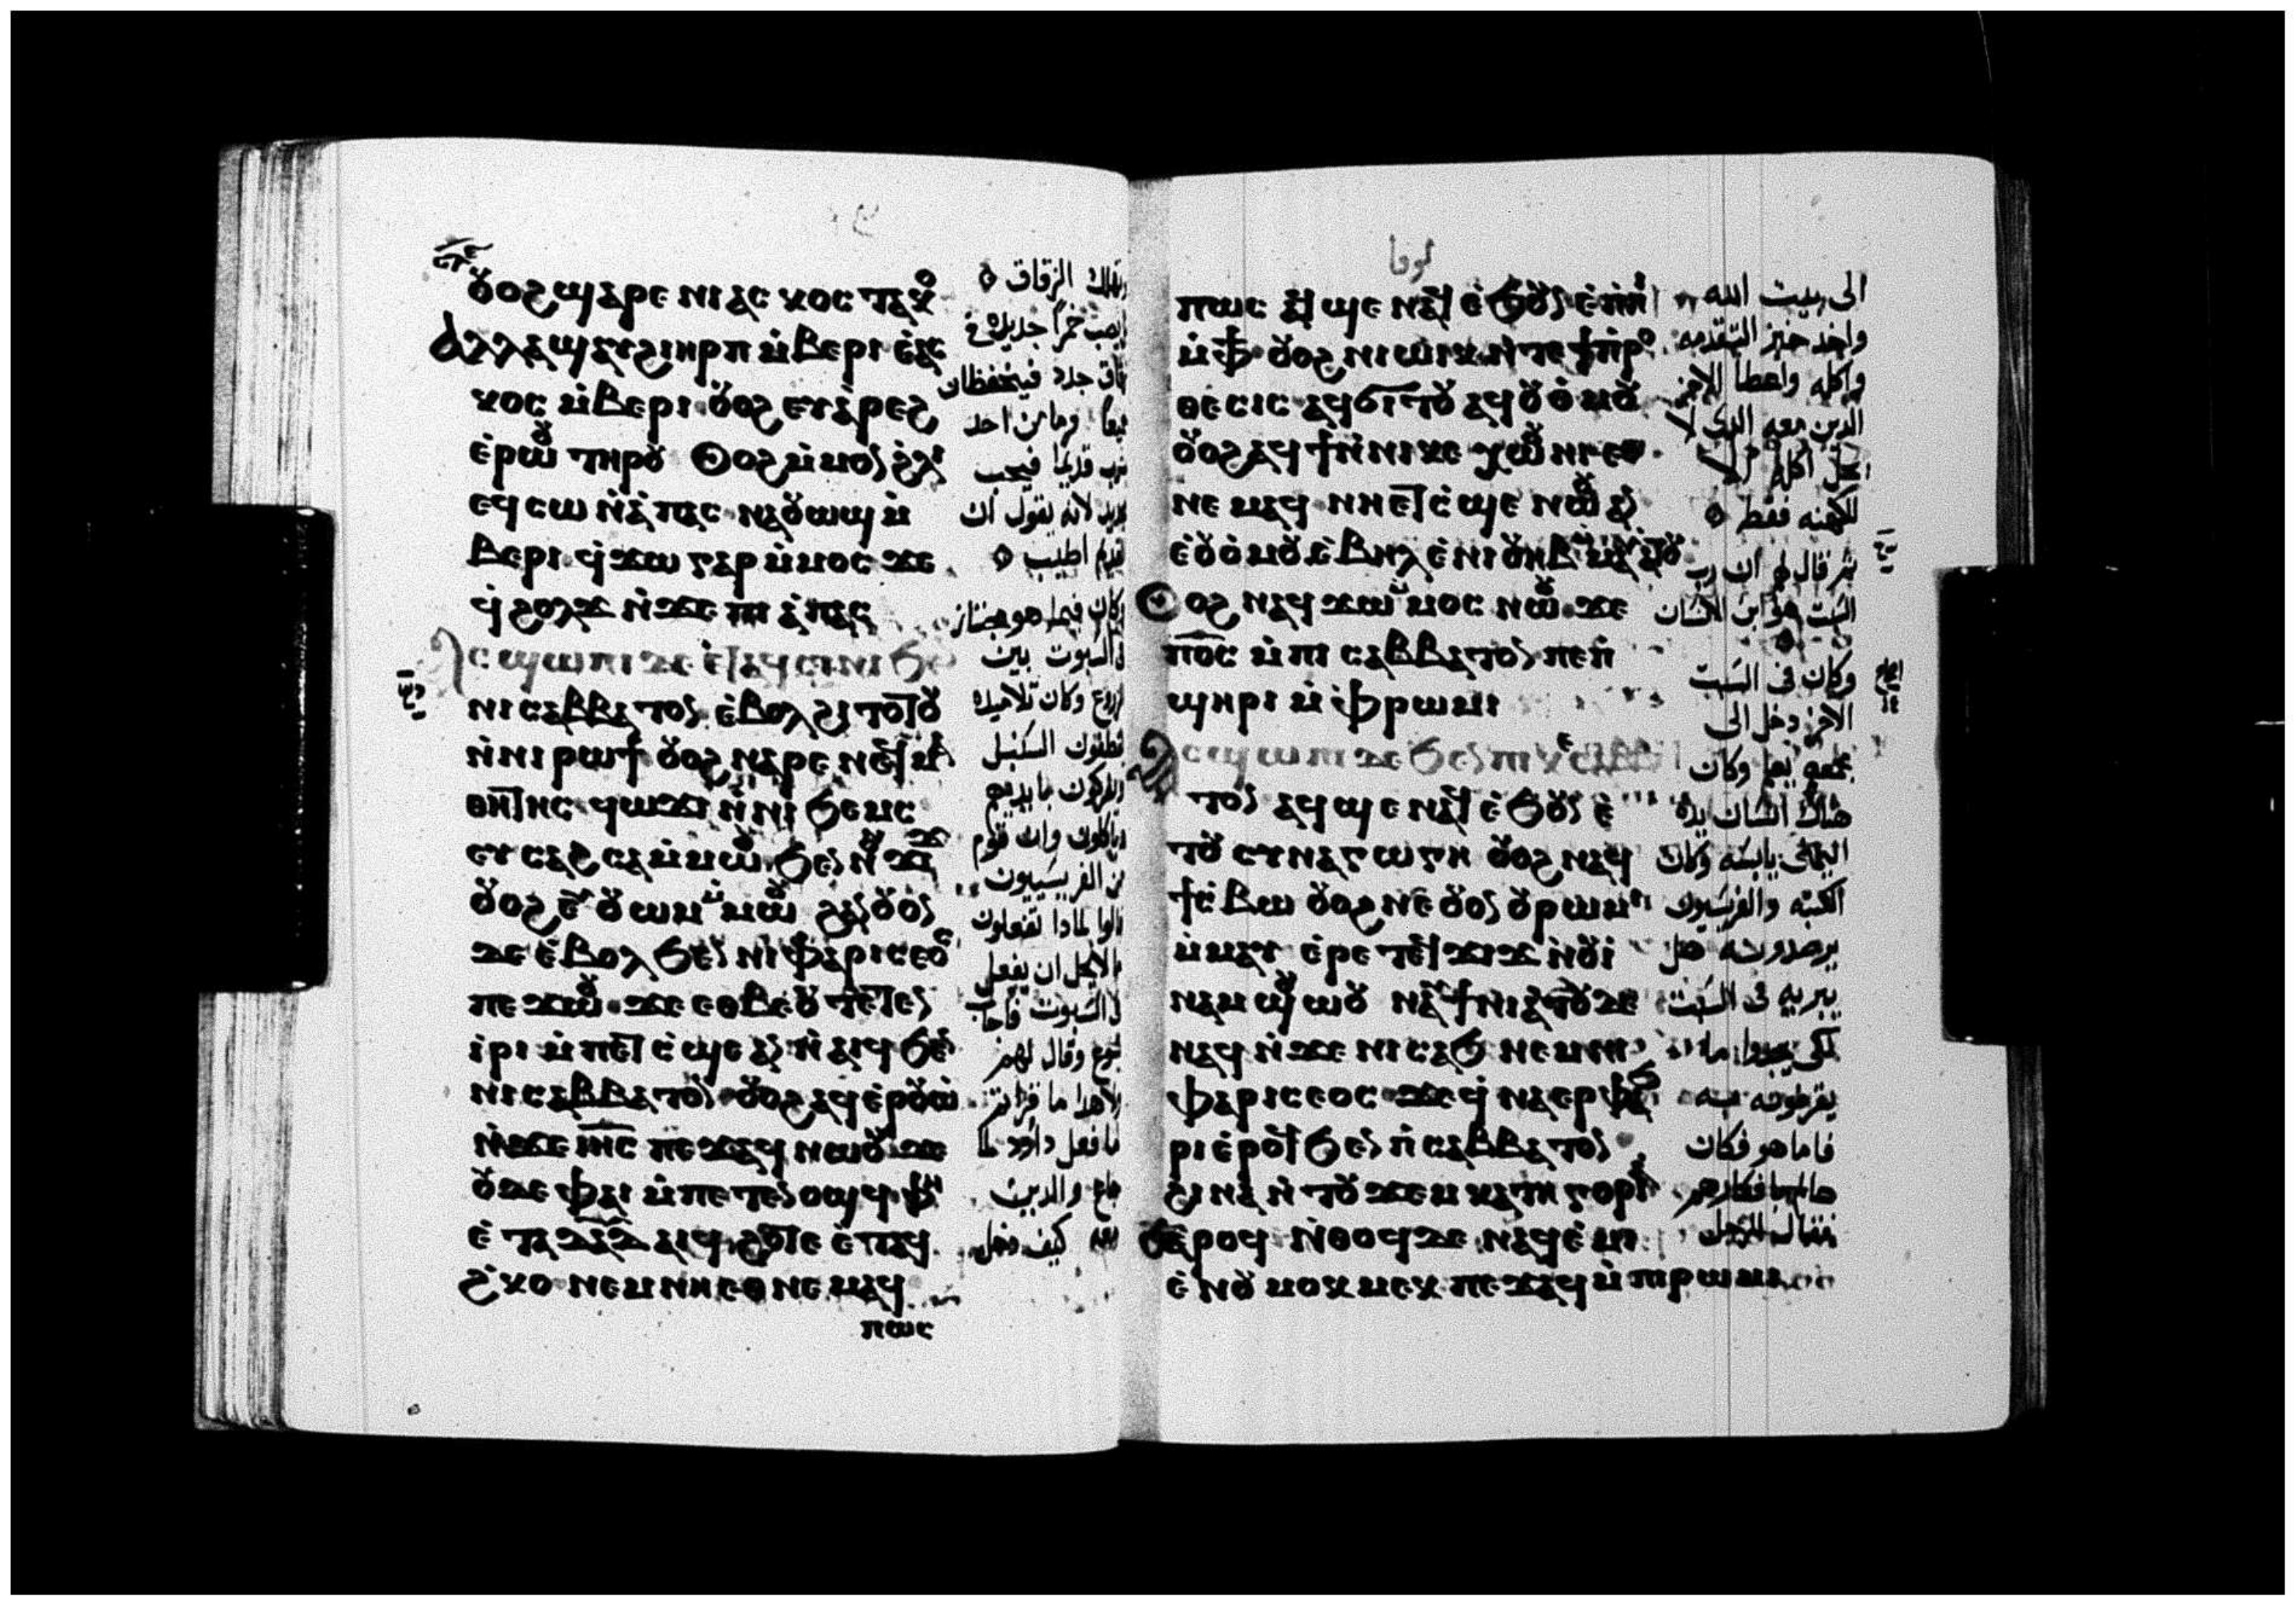 ⲟⲩⲟϩ ϣⲁⲣⲉ ⲛⲓⲁⲥⲭⲟⲥ ⲧⲁⲕⲟ
ⲁⲗⲗⲁ ϣⲁⲩϩⲓⲏⲣⲡ ⲙ̀ⲃⲉⲣⲓ ⲉ̀ⲁⲥ
ⲭⲟⲥ ⲙ̀ⲃⲉⲣⲓ ⲟⲩⲟϩ ⲉⲩⲁ̀ⲣⲉϩ
ⲉ̀ⲣⲱⲟⲩ ⲧⲏⲣⲟⲩ ⲟⲩⲟϩ ⲙ̀ⲙⲟⲛ ϩ̀ⲗⲓ
ⲉϥⲥⲱ ⲛ̀ⲁ̀ⲡⲁⲥ ⲛⲁⲟⲩⲱϣ ⲙ̀
ⲃⲉⲣⲓ ϥ̀ϫⲱ ⲅⲁⲣ ⲙ̀ⲙⲟⲥ ϫⲉ
ϥ̀ϩⲟⲗϫ ⲛ̀ϫⲉ ⲡⲓ ⲁ̀ⲡⲁⲥ
ⲁⲥϣⲱⲡⲓ ⲇⲉ ⲉ̀ⲧⲁϥⲥⲓⲛⲓ ϧⲉⲛ
ⲛⲓⲥⲁⲃⲃⲁⲧⲟⲛ ⲉ̀ⲃⲟⲗ ϩⲓⲧⲟⲧⲟⲩ
ⲛ̀ⲛⲓ ⲣⲱϯ ⲟⲩⲟϩ ⲛⲁⲣⲉ ⲛⲉϥⲙⲁ
ⲑⲏⲧⲏⲥ ϥⲱϫⲓ ⲛ̀ⲛⲓ ϧⲉⲙⲥ
ⲉⲩⲥⲁϩⲥⲁ ⲙ̀ⲙⲱⲟⲩ ϧⲉⲛ ⲛⲟⲩϫⲓϫ
ⲟⲩⲟϩ ⲉⲩⲟⲩⲱⲙ ⲙ̀ⲙⲱⲟⲩ ϩⲁⲛⲟⲩⲟⲛ
ⲇⲉ ⲉ̀ⲃⲟⲗ ϧⲉⲛ ⲛⲓⲫⲁⲣⲓⲥⲉⲟⲥ
ⲡⲉϫⲱⲟⲩ ϫⲉ ⲉⲑⲃⲉⲟⲩ ⲧⲉⲧⲉⲛ
ⲓ̀ⲣⲓ ⲙ̀ⲡⲉⲧⲥ̀ϣⲉ ⲁⲛ ⲛ̀ⲁⲓϥ ϧⲉⲛ
ⲛⲓⲥⲁⲃⲃⲁⲧⲟⲛ ⲟⲩⲟϩ ⲁϥⲉ̀ⲣⲟⲩⲱ̀
ⲛ̀ϫⲉ ⲓⲏⲥ ⲡⲉϫⲁϥ ⲛⲱⲟⲩ ϫⲉ
ⲟⲩⲇⲉ ⲫⲁⲓ ⲙ̀ⲡⲉⲧⲉⲛⲟϣϥ ⲫⲏ
ⲉ̀ⲧⲁ ⲇⲁⲇ ⲁⲓϥ ϩⲟⲧⲉ ⲉ̀ⲧⲁϥ
ϩ̀ⲕⲟ ⲛⲉⲙ ⲛⲏⲉⲑⲛⲉⲙⲁϥ
ⲡⲱⲥ
وتهلك الزقاق
خمرًا جديدة في
جدد فيتحفظان
جميعا وما من احد
قديما فيحب
جديد لانه يقول ان
قديم اطيب
وكان فيما هو مجتاز
في السبوت بين
الزروع وكان تلاميذه
يقطفون السنبل
ويفركون بايديهم
وياكلون وان قوم
من الفريسيون
قالوا لماذا تفعلون
ما لا يحل ان يفعل
في السبوت فاجاب
يسوع وقال لهم
ولا هذا ما قراتم
ما فعل داود لما
جاع والذين
معه كيف دخل
لوقا
ⲡⲱⲥ ⲁϥϣⲉ ⲛⲁϥ ⲉ̀ϧⲟⲩⲛ ⲉ̀ⲡⲏⲓ
ⲙ̀ⲫϯ ⲟⲩⲟϩ ⲛⲓⲱⲓⲕ ⲛ̀ⲧⲉ ϯⲡⲣⲟ
ⲑⲉⲥⲓⲥ ⲁϥϭⲓⲧⲟⲩ ⲁϥⲟⲩⲟ̀ⲙⲟⲩ
ⲟⲩⲟϩ ⲁϥϯ ⲛ̀ⲛⲓⲕⲉ ⲭⲱⲟⲩⲛⲓ ⲉⲑ
ⲛⲉⲙⲁϥ ⲛⲏⲉⲧⲥ̀ϣⲉ ⲛⲱⲟⲩ ⲁⲛ
ⲉ̀ⲟⲩⲟ̀ⲙⲟⲩ ⲉ̀ⲃⲏⲗ ⲉ̀ⲛⲓⲟⲩⲏⲃ ⲙ̀ⲙⲁⲩⲁⲧⲟⲩ
ⲟⲩⲟϩ ⲛⲁϥϫⲱ ⲙ̀ⲙⲟⲥ ⲛⲱⲟⲩ ϫⲉ
ⲡⲟ̅ⲥ̅ ⲙ̀ⲡⲓ ⲥⲁⲃⲃⲁⲧⲟⲛ ⲡⲉ ⲡ̀
ϣⲏⲣⲓ ⲙ̀ⲫ̀ⲣⲱⲙⲓ
ⲁⲥϣⲱⲡⲓ ⲇⲉ ϧⲉⲛ ⲡⲓⲕⲉⲥⲁⲃⲃⲁ
ⲧⲟⲛ ⲁϥϣⲉ ⲛⲁϥ ⲉ̀ϧⲟⲩⲛ ⲉ̀
ⲧⲟⲩ ⲥⲩⲛⲁⲅⲱⲅⲏ ⲟⲩⲟϩ ⲛⲁϥ
ϯⲥ̀ⲃⲱ ⲟⲩⲟϩ ⲛⲉ ⲟⲩⲟⲛ ⲟⲩⲣⲱⲙⲓ
ⲙ̀ⲙⲁⲩ ⲉ̀ⲣⲉ ⲧⲉϥϫⲓϫ ⲛ̀ⲟⲩⲓ̀
ⲛⲁⲙ ϣⲟⲩⲱⲟⲩ ⲛⲁⲩϯⲛⲓⲁⲧⲟⲩ ⲇⲉ
ⲛⲁϥ ⲛ̀ϫⲉ ⲛⲓⲥⲁϧ ⲛⲉⲙ ⲛⲓ
ⲫⲁⲣⲓⲥⲉⲟⲥ ϫⲉ ϥ̀ⲛⲁⲉⲣⲫⲁϧ
ⲣⲓ ⲉ̀ⲣⲟϥ ϧⲉⲛ ⲡ̀ⲥⲁⲃⲃⲁⲧⲟⲛ
ϩⲓⲛⲁ ⲛ̀ⲧⲟⲩϫⲉⲙ ⲕⲁⲧⲏⲅⲟⲣⲓⲁ
ⲉ̀ⲣⲟϥ ⲛ̀ⲑⲟϥ ⲇⲉ ⲛⲁϥⲉ̀ⲙⲓ
ⲉ̀ⲛⲟⲩ ⲙⲟⲕⲙⲉⲕ ⲡⲉϫⲁϥ ⲙ̀ⲡⲓⲣⲱⲙⲓ
الى بيت الله
واخذ خبز التقدمه
واكله واعطا الاخر
الذين معه الذى لا
يحل اكله الا
للكهنه فقط
ثم قال لهم ان رب
السبت هو ابن الانسان
وكان فى السبت
الاخر دخل الى
مجمعهم يعلم وكان
هناك انسان يده
اليمنى يابسه وكان
الكتبه والفريسيون
يرصدونه هل
يبريه فى السبت
لكى يجدوا ما
يقرفونه به
فاما هو فكان
عالما بافكارهم
فقال للرجل